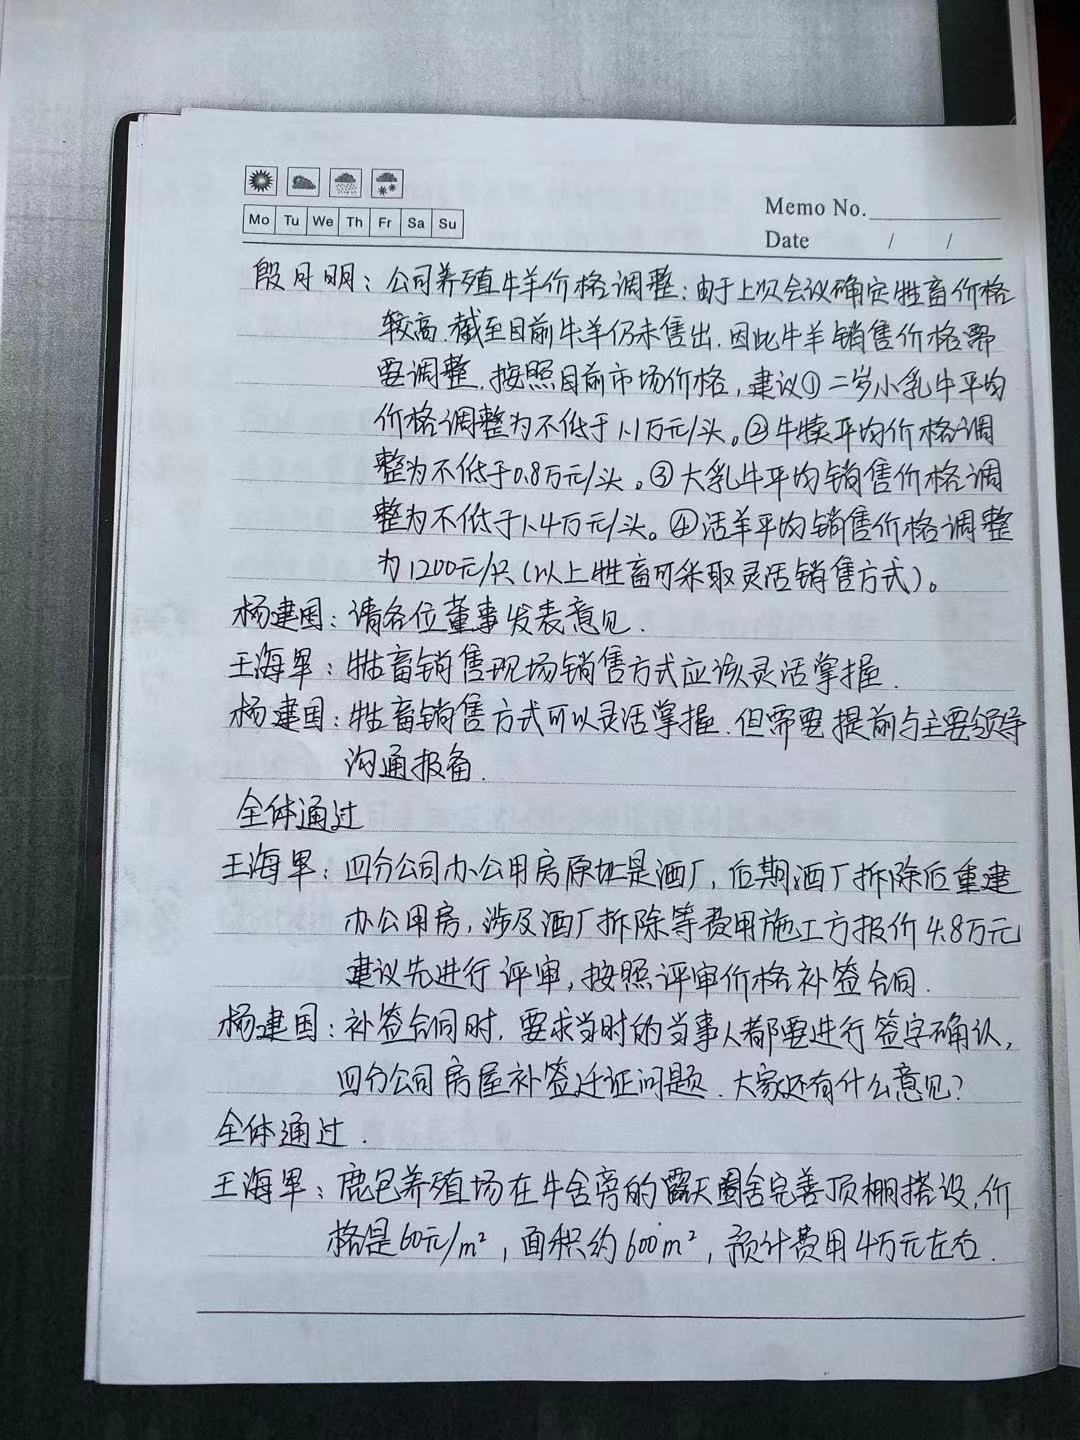 Mo Tu We Th Fr Sa Su
Memo No.
Date / /
段月明：公司养殖牛羊价格调整：由于上次会议确定牲畜价格
较高.截至目前牛羊仍未售出.因此牛羊销售价格需
要调整.按照目前市场价格,建议①二岁小乳牛平均
价格调整为不低于1.1万元/头。②牛犊平均价格调
整为不低于0.8万元/头。③大乳牛平均销售价格调
整为不低于1.4万元/头。④活羊平均销售价格调整
为1200元/只(以上牲畜可采取灵活销售方式)。
杨建国：请各位董事发表意见.
王海军：牲畜销售现场销售方式应该灵活掌握.
杨建国：牲畜销售方式可以灵活掌握.但需要提前与主要领导
沟通报备.
全体通过
王海军：四分公司办公用房原址是酒厂,后期酒厂拆除后重建
办公用房,涉及酒厂拆除等费用施工方报价4.8万元
建议先进行评审,按照评审价格补签合同.
杨建国：补签合同时.要求当时的当事人都要进行签字确认,
四分公司房屋补签迁证问题.大家还有什么意见?
全体通过.
王海军：鹿包养殖场在牛舍旁的露天圈舍完善顶棚搭设,价
格是60元/m²,面积约600m²,预计费用4万元左右.